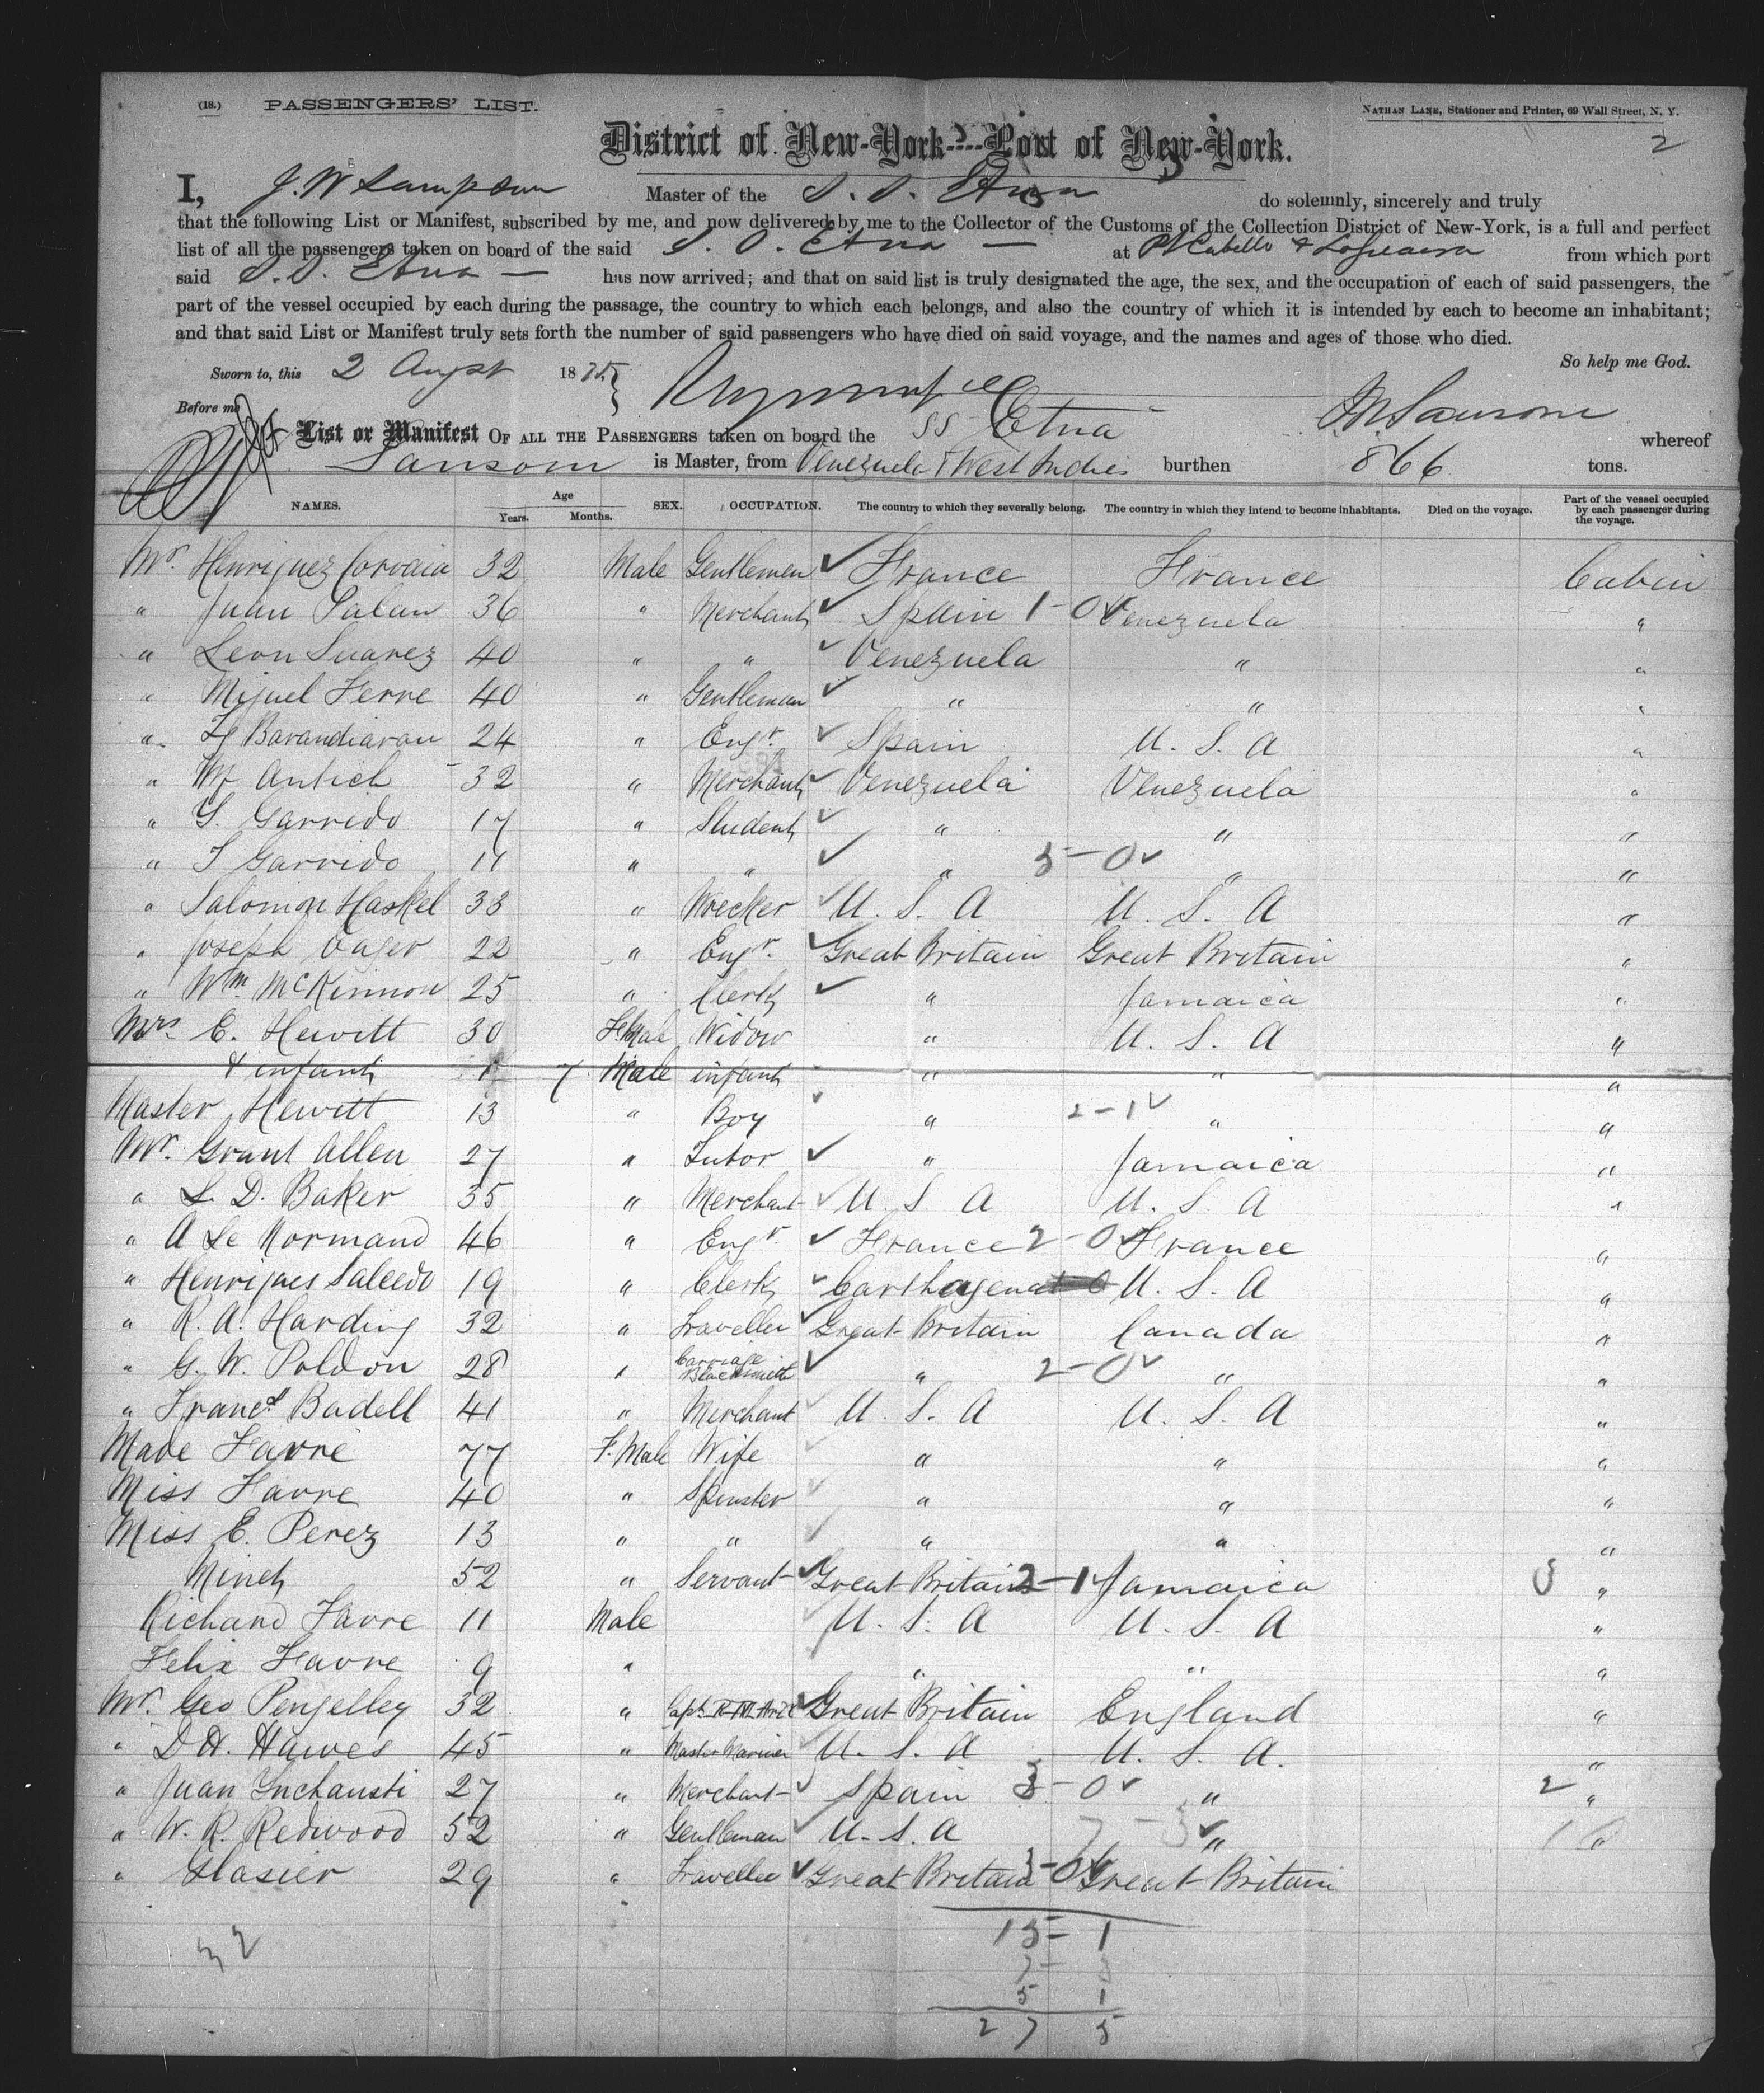 (18.) PASSENGERS' LIST. NATHAN LANE, Stationer and Printer, 69 Wall Street, N. Y.
2
District of New-York----Port of New-York.
I, J. W Sampson Master of the S. S. Etna do solemnly, sincerely and truly
that the following List or Manifest, subscribed by me, and now delivered by me to the Collector of the Customs of the Collection District of New-York, is a full and perfect
list of all the passengers taken on board of the said S. S. Etna — at Pt Cabello & Laguaira from which port
said S. S. Etna — has now arrived; and that on said list is truly designated the age, the sex, and the occupation of each of said passengers, the
part of the vessel occupied by each during the passage, the country to which each belongs, and also the country of which it is intended by each to become an inhabitant;
and that said List or Manifest truly sets forth the number of said passengers who have died on said voyage, and the names and ages of those who died.
So help me God.
Sworn to, this 2 Augst 1875
Before me
List or Manifest OF ALL THE PASSENGERS taken on board the SS Etna whereof
Sansom is Master, from Venezuela & West Indies burthen 866 tons.
NAMES. Age Years. Months. SEX. OCCUPATION. The country to which they severally belong. The country in which they intend to become inhabitants. Died on the voyage. Part of the vessel occupied by each passenger during the voyage.
Mr. Henriquez Corvaia 32 Male Gentlemen ✓ France France Cabin
" Juan Palau 36 " Merchant ✓ Spain 1-0✓ Venezuela "
" Leon Suarez 40 " " ✓ Venezuela " "
" Miguel Ferre 40 " Gentleman ✓ " " "
" Barandiaran 24 " Engr. ✓ Spain U. S. A "
" M Antich 32 " Merchant ✓ Venezuela Venezuela "
" S. Garrido 17 " Student ✓ " " "
" T Garrido 11 " " ✓ " 5-0✓ " "
" Salomon Haskel 33 " Wrecker ✓ U. S. A U. S. A "
" Joseph Eager 22 " Engr. ✓ Great Britain Great Britain "
" Wm McKinnon 25 " Clerk ✓ " Jamaica "
Mrs E. Hewitt 30 Female Widow " U. S. A "
& infant 7 Male infant " " "
Master Hewitt 13 " Boy ✓ " 2-1✓ " "
Mr. Grant Allen 27 " Tutor ✓ " Jamaica "
" L. D. Baker 35 " Merchant ✓ U. S. A U. S. A "
" A Le Normand 46 " Engr. ✓ France 2-0✓ France "
" Henriques Salcedo 19 " Clerk ✓ Carthagena U. S. A "
" R. A. Harding 32 " Traveller ✓ Great Britain Canada "
" G. W. Poldon 28 " Carriage Blacksmith ✓ " 2-0✓ " "
" Francs Badell 41 " Merchant ✓ U. S. A U. S. A "
Made Favre 77 F. Male Wife ✓ " " "
Miss Favre 40 " Spinster ✓ " " "
Miss E. Perez 13 " " ✓ " " "
Minch 52 " Servant ✓ Great Britain 2-1✓ Jamaica 3 "
Richard Favre 11 Male U. S. A U. S. A "
Felix Favre 9 " " " "
Mr. Geo Pengelley 32 " Capt. ✓ Great Britain England "
" D H. Hawes 45 " Master Mariner U. S. A U. S. A. "
" Juan Ynchausti 27 " Merchant ✓ Spain 3-0✓ " 2 "
" W. R. Redwood 52 " Gentleman ✓ U. S. A 7-3✓ " "
" Glasier 29 " Traveller ✓ Great Britain 3-0✓ Great Britain
32
15-1
7-3
5 1
27 5